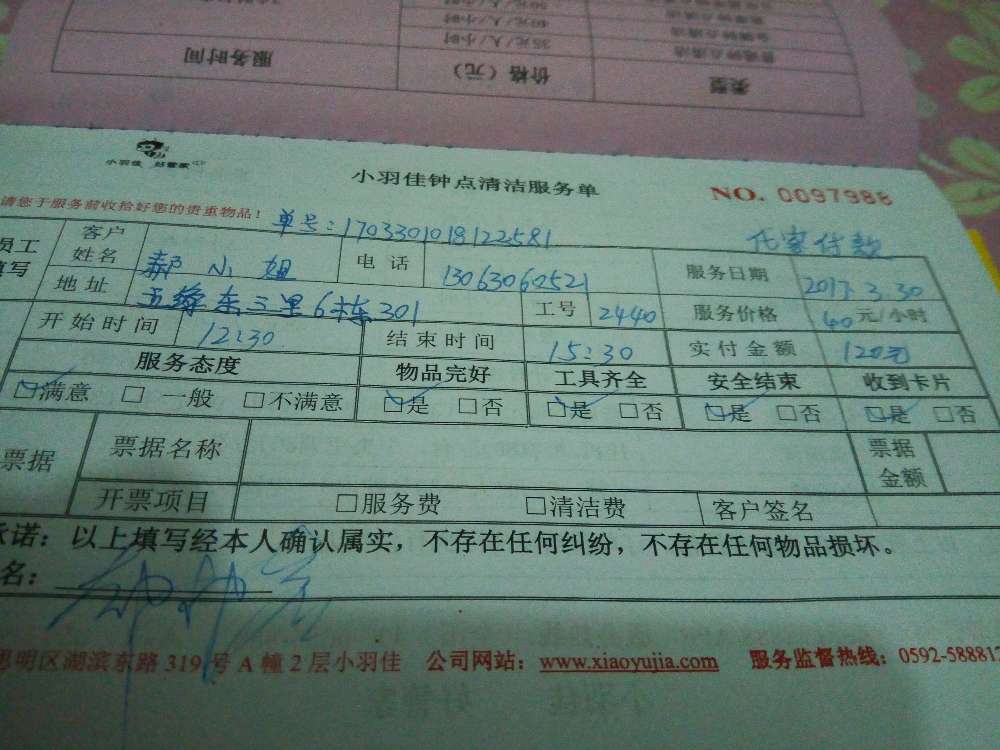 服务时间 价格（元） 类型
35元/人/小时
40元/人/小时
50元/人/小时
小羽佳 好管家
小羽佳钟点清洁服务单 NO. 0097988
请您于服务前收拾好您的贵重物品！ 单号：1703301018122581
员工填写 客户姓名 郝小姐 电话 13063060521 服务日期 2017.3.30
地址 五缘东三里6栋301 工号 2440 服务价格 40元/小时
开始时间 12:30 结束时间 15:30 实付金额 120元
服务态度 物品完好 工具齐全 安全结束 收到卡片
☑满意 □一般 □不满意 ☑是 □否 ☑是 □否 ☑是 □否 ☑是 □否
票据 票据名称 票据金额
开票项目 □服务费 □清洁费 客户签名
承诺：以上填写经本人确认属实，不存在任何纠纷，不存在任何物品损坏。
名：
思明区湖滨东路 319 号 A 幢 2 层小羽佳 公司网站：www.xiaoyujia.com 服务监督热线：0592-588812